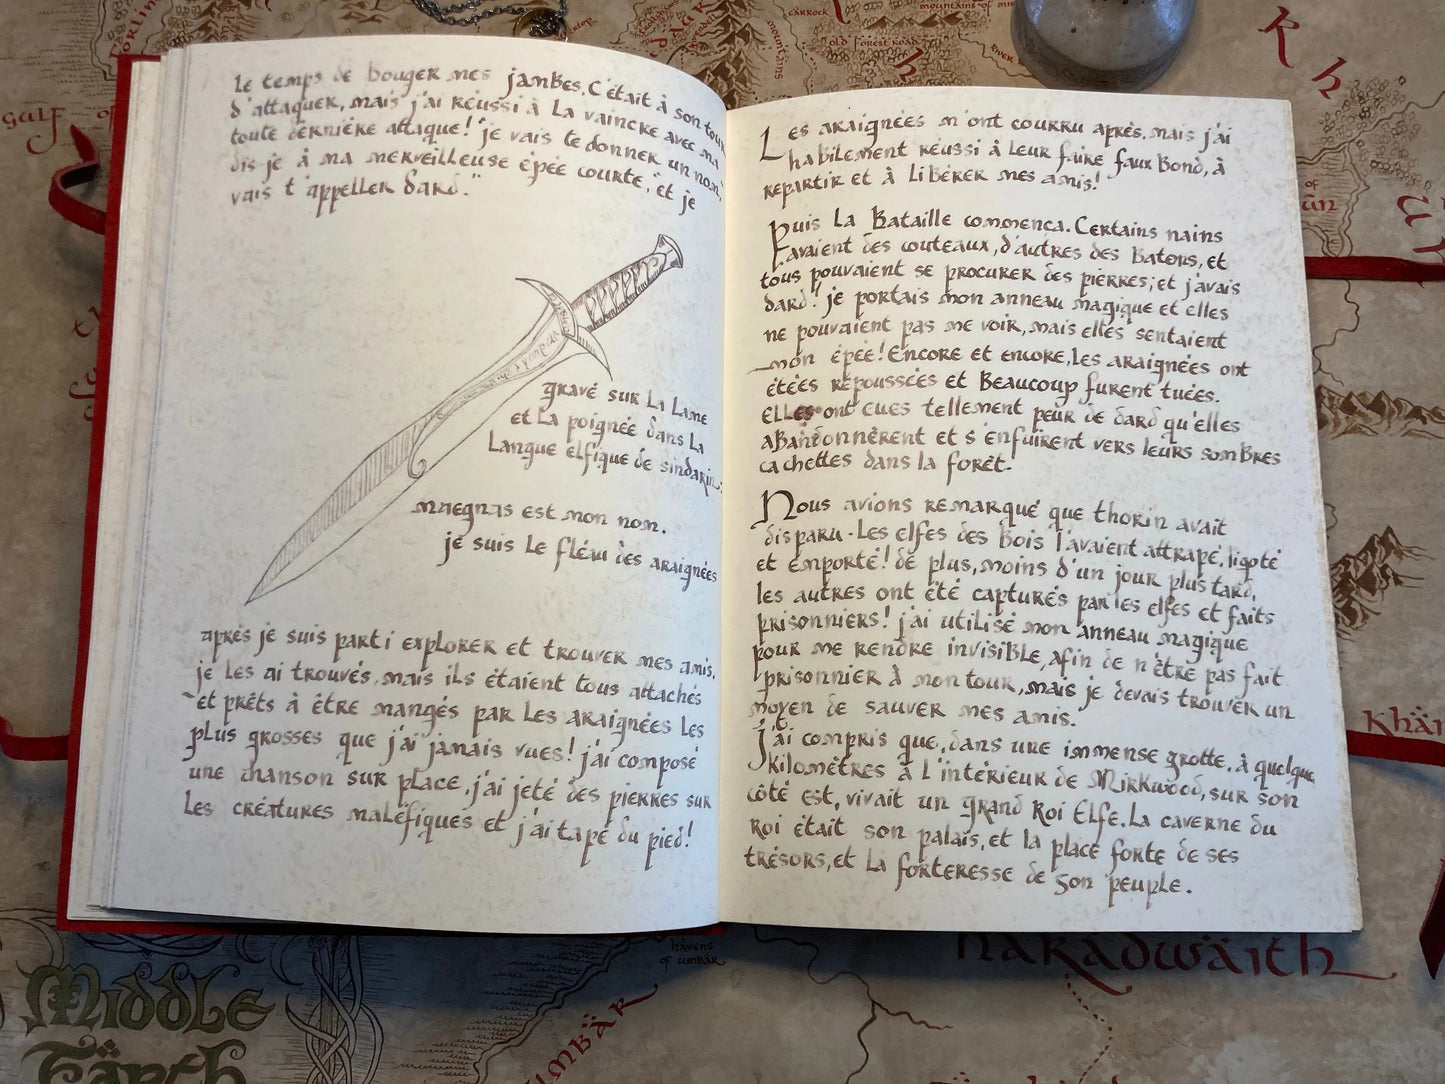 le temps de bouger mes jambes. C'était à son tour
d'attaquer, mais j'ai réussi à la vaincre avec ma
toute dernière attaque! "je vais te donner un nom,"
dis-je à ma merveilleuse épée courte, "et je
vais t'appeller dard."
gravé sur la lame
et la poignée dans la
langue elfique de sindarin:
maegnas est mon nom.
je suis le fléau des araignées
après je suis parti explorer et trouver mes amis.
je les ai trouvés, mais ils étaient tous attachés
et prêts à être mangés par les araignées les
plus grosses que j'ai jamais vues! j'ai composé
une chanson sur place, j'ai jeté des pierres sur
les créatures maléfiques et j'ai tapé du pied!
Les araignées m'ont courru après, mais j'ai
habilement réussi à leur faire faux bond, à
repartir et à libérer mes amis!
Puis la bataille commença. Certains nains
avaient des couteaux, d'autres des batons, et
tous pouvaient se procurer des pierres; et j'avais
dard! je portais mon anneau magique et elles
ne pouvaient pas me voir, mais elles sentaient
mon épée! Encore et encore, les araignées ont
étées repoussées et beaucoup furent tuées.
Elles ont eues tellement peur de dard qu'elles
abandonnèrent et s'enfuirent vers leurs sombres
cachettes dans la forêt.
Nous avions remarqué que thorin avait
disparu. Les elfes des bois l'avaient attrapé, ligoté
et emporté! de plus, moins d'un jour plus tard,
les autres ont été capturés par les elfes et faits
prisonniers! j'ai utilisé mon anneau magique
pour me rendre invisible, afin de n'être pas fait
prisonnier à mon tour, mais je devais trouver un
moyen de sauver mes amis.
j'ai compris que, dans une immense grotte, à quelque
kilomètres à l'intérieur de Mirkwood, sur son
côté est, vivait un grand Roi Elfe. La caverne du
Roi était son palais, et la place forte de ses
trésors, et la forteresse de son peuple.
GULF
CARROCK
OLD FOREST ROAD
MOUNTAINS OF
RIVER
OF
KHÄ
HARADWÄITH
HAVENS
OF UMBÄR
UMBÄR
MIDDLE
EÄRTH